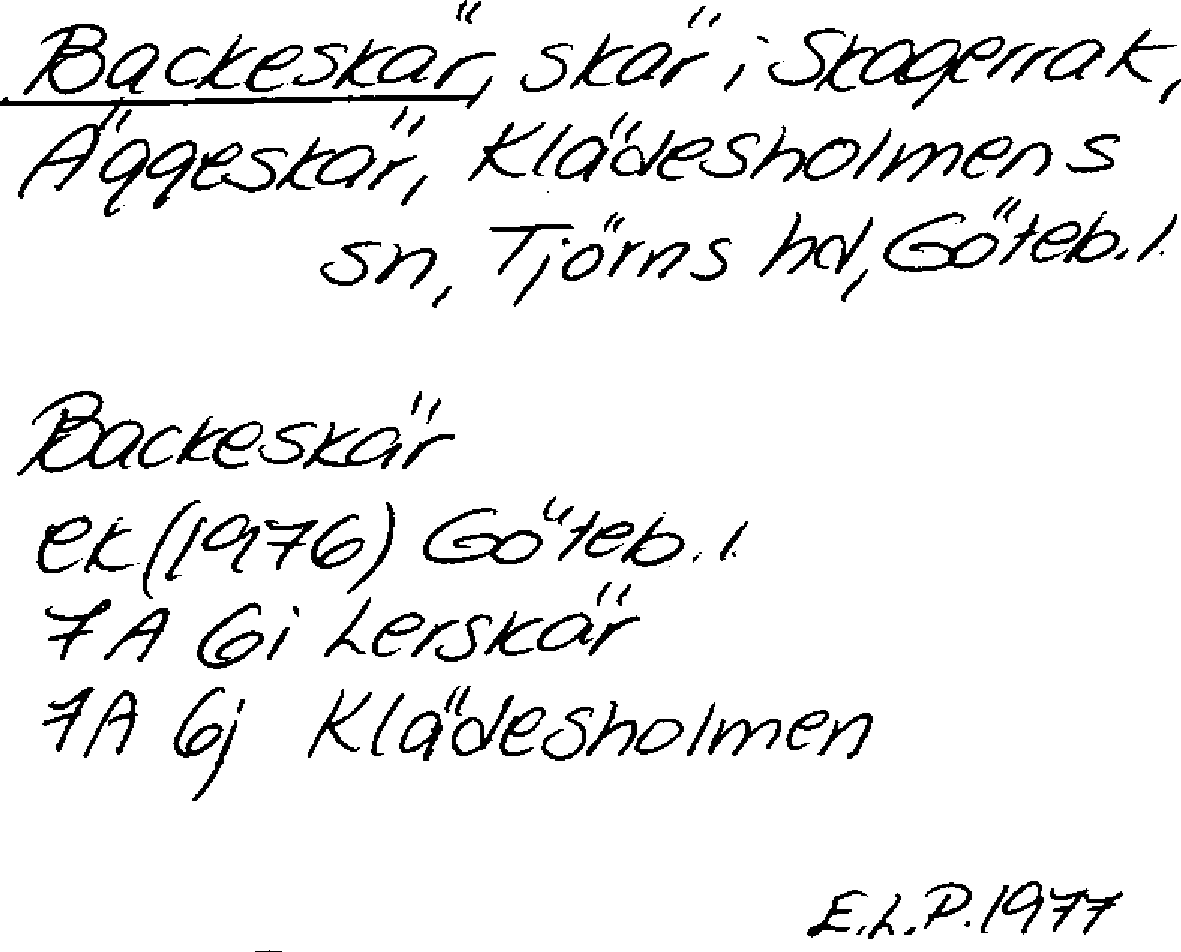 Backeskär, skär i Skagerrak,
Äggeskär, Klädesholmens
sn, Tjörns hd, Göteb. l.
Backeskär
ek (1976) Göteb. l.
7A 6i Lerskär
7A 6j Klädesholmen
E.L.P. 1977